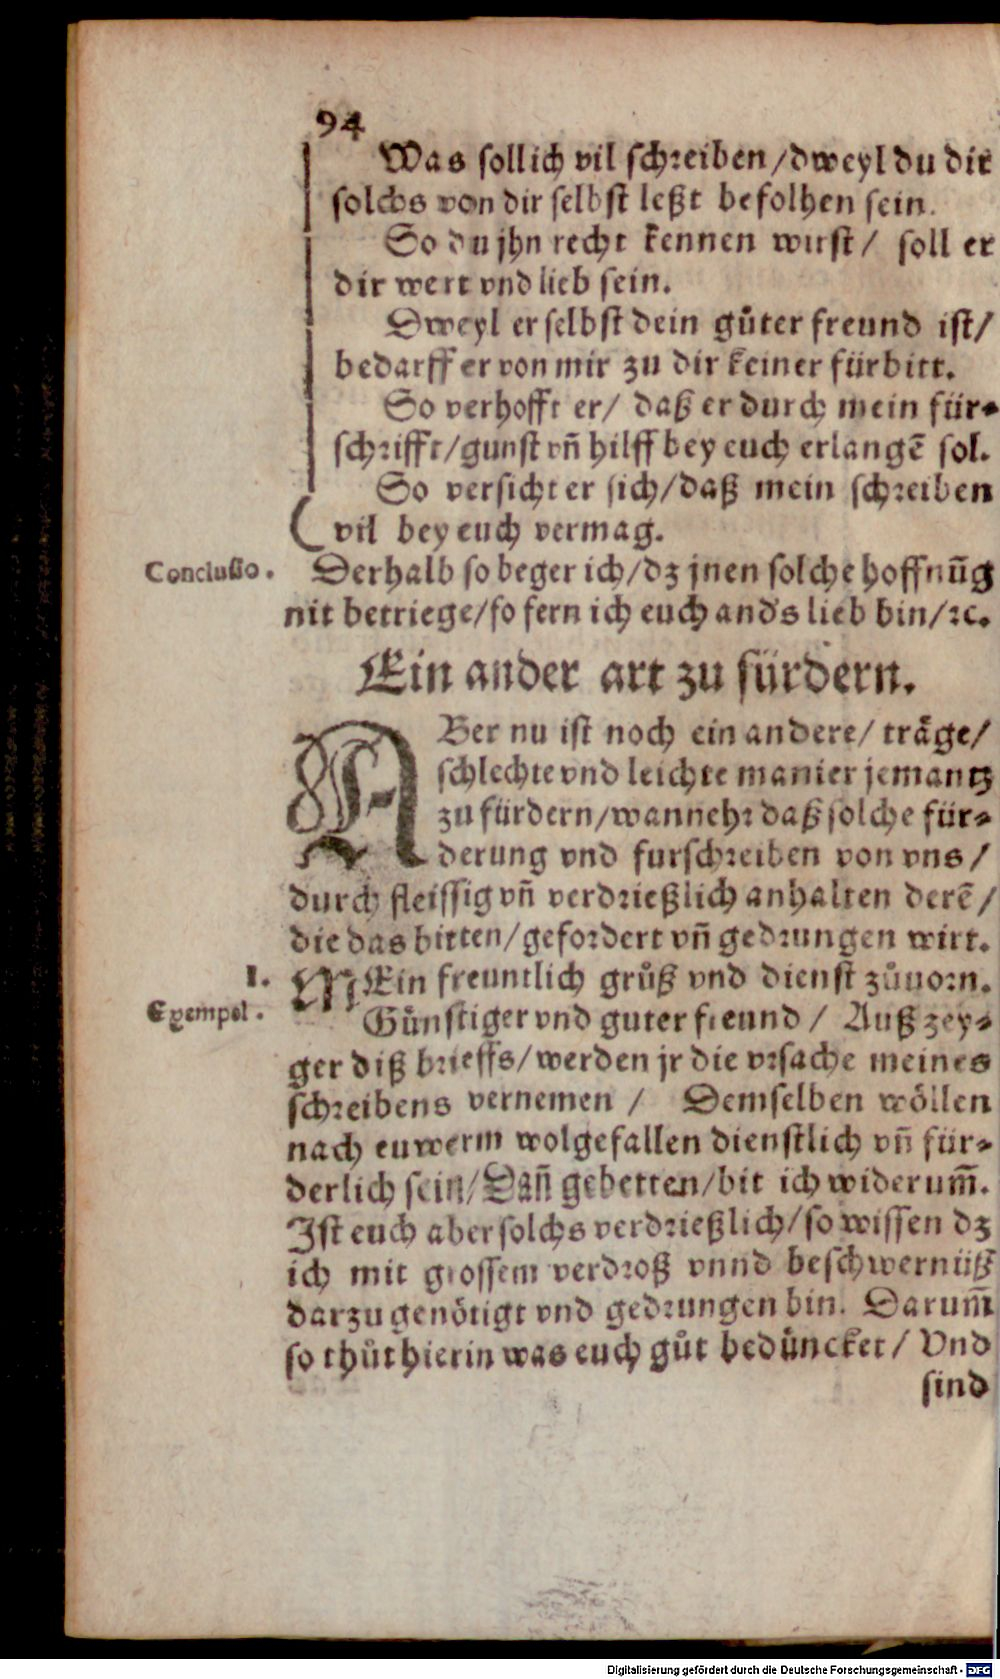 94
Was sollich vil schreiben/dweyl du dir
solchs von dir selbst leßt befolhen sein.
So du jhn recht kennen wirst/ soll er
dir wert vnd lieb sein.
Dweyl er selbst dein gůter freund ist/
bedarff er von mir zu dir keiner fürbitt.
So verhofft er/ daß er durch mein für-
schrifft/gunst vn̄ hilff bey euch erlangē sol.
So versicht er sich/daß mein schreiben
vil bey euch vermag.
Conclusio. Derhalb so beger ich/dz jnen solche hoffnūg
nit betriege/so fern ich euch and's lieb bin/ꝛc.
Ein ander art zu fürdern.
ABer nu ist noch ein andere/ träge/
schlechte vnd leichte manier jemantz
zu fürdern/wannehr daß solche für-
derung vnd furschreiben von vns/
durch fleissig vn̄ verdrießlich anhalten derē/
die das bitten/gefordert vn̄ gedrungen wirt.
1. MEin freuntlich grůß vnd dienst zůuorn.
Exempel. Günstiger vnd guter freund/ Auß zey-
ger diß brieffs/werden jr die vrsache meines
schreibens vernemen/ Demselben wöllen
nach euwerm wolgefallen dienstlich vn̄ für-
derlich sein/Dan̄ gebetten/bit ich widerum̄.
Ist euch aber solchs verdrießlich/so wissen dz
ich mit grossem verdroß vnnd beschwernüß
darzu genötigt vnd gedrungen bin. Darum̄
so thůt hierin was euch gůt bedüncket/ Vnd
sind
Digitalisierung gefördert durch die Deutsche Forschungsgemeinschaft - DFG